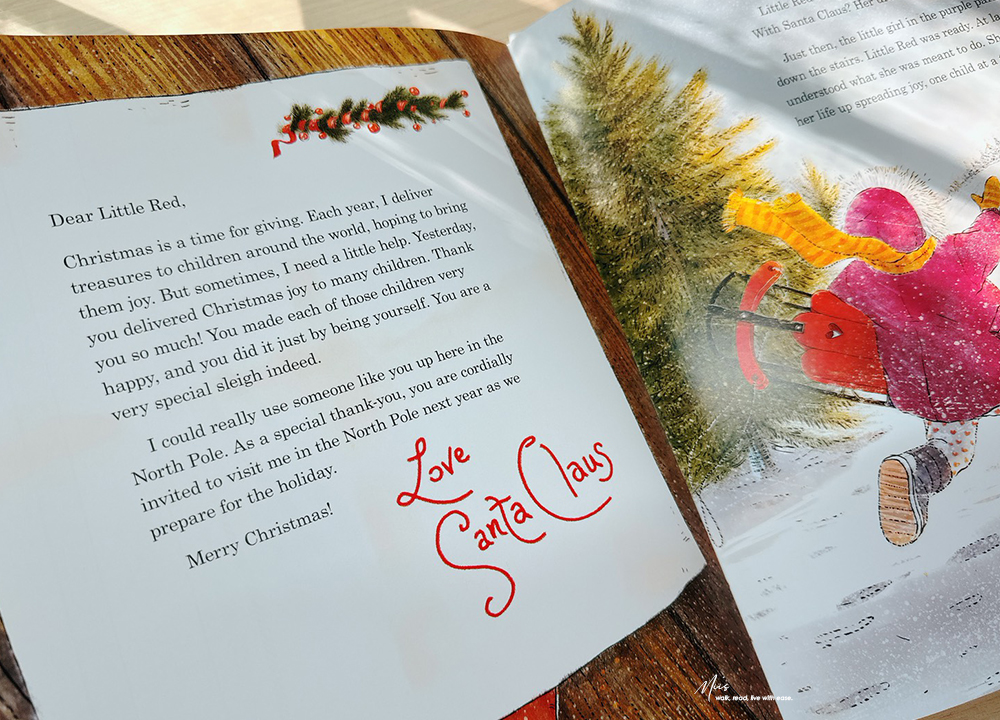 Dear Little Red,
Christmas is a time for giving. Each year, I deliver
treasures to children around the world, hoping to bring
them joy. But sometimes, I need a little help. Yesterday,
you delivered Christmas joy to many children. Thank
you so much! You made each of those children very
happy, and you did it just by being yourself. You are a
very special sleigh indeed.
I could really use someone like you up here in the
North Pole. As a special thank-you, you are cordially
invited to visit me in the North Pole next year as we
prepare for the holiday.
Merry Christmas!
Love
Santa Claus
Little Red
With Santa Claus? Her
Just then, the little girl in the purple
down the stairs. Little Red was ready. At
understood what she was meant to do.
her life up spreading joy, one child at a
walk, read, live with ease.